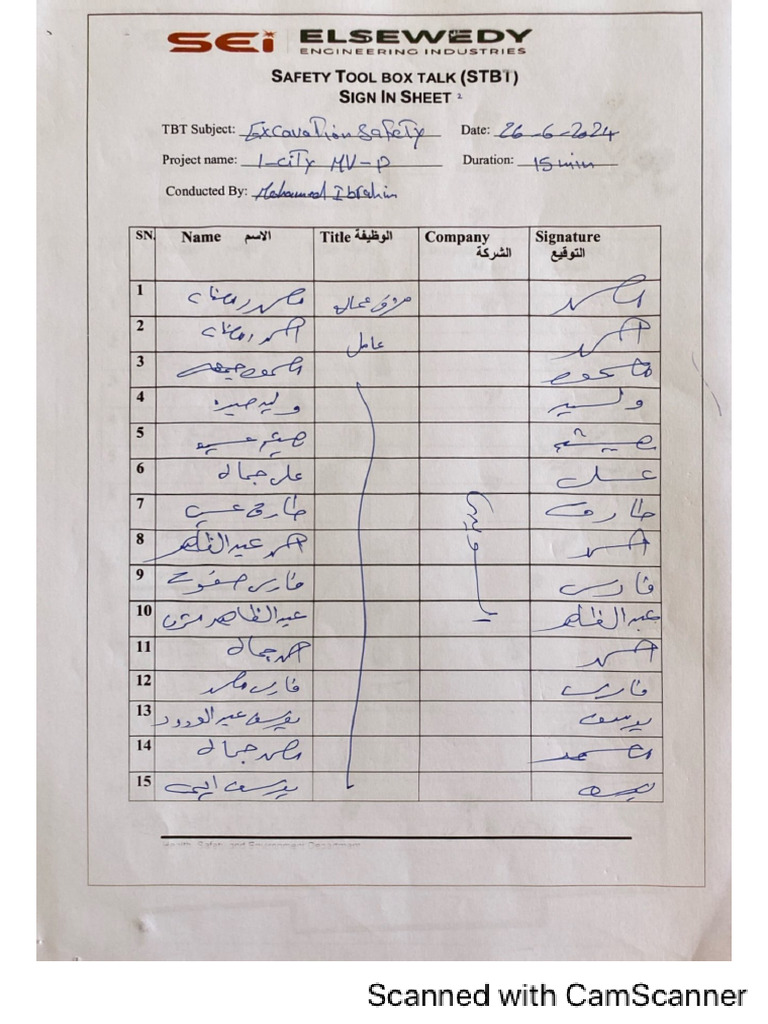 SEi ELSEWEDY
ENGINEERING INDUSTRIES
SAFETY TOOL BOX TALK (STBT)
SIGN IN SHEET 2
TBT Subject: Excavation Safety Date: 26-6-2024
Project name: I-city MV-P Duration: 15 min
Conducted By: Mohamed Ibrahim
SN. Name الاسم Title الوظيفة Company الشركة Signature التوقيع
1 محمد رمضان
2 احمد رمضان عامل احمد
3 محمود جمعه محمود
4 وليد وليد
5 هيثم هيثم
6 علي جمال علي
7 طارق طارق
8 احمد عبد الظاهر احمد
9 فارس صفوت فارس
10 عبد الظاهر عبد الظاهر
11 احمد جمال احمد
12 فارس محمد فارس
13 يوسف عبد الودود يوسف
14 محمد جمال محمد
15 يوسف يوسف
السويدي
Health, Safety and Environment Department
Scanned with CamScanner